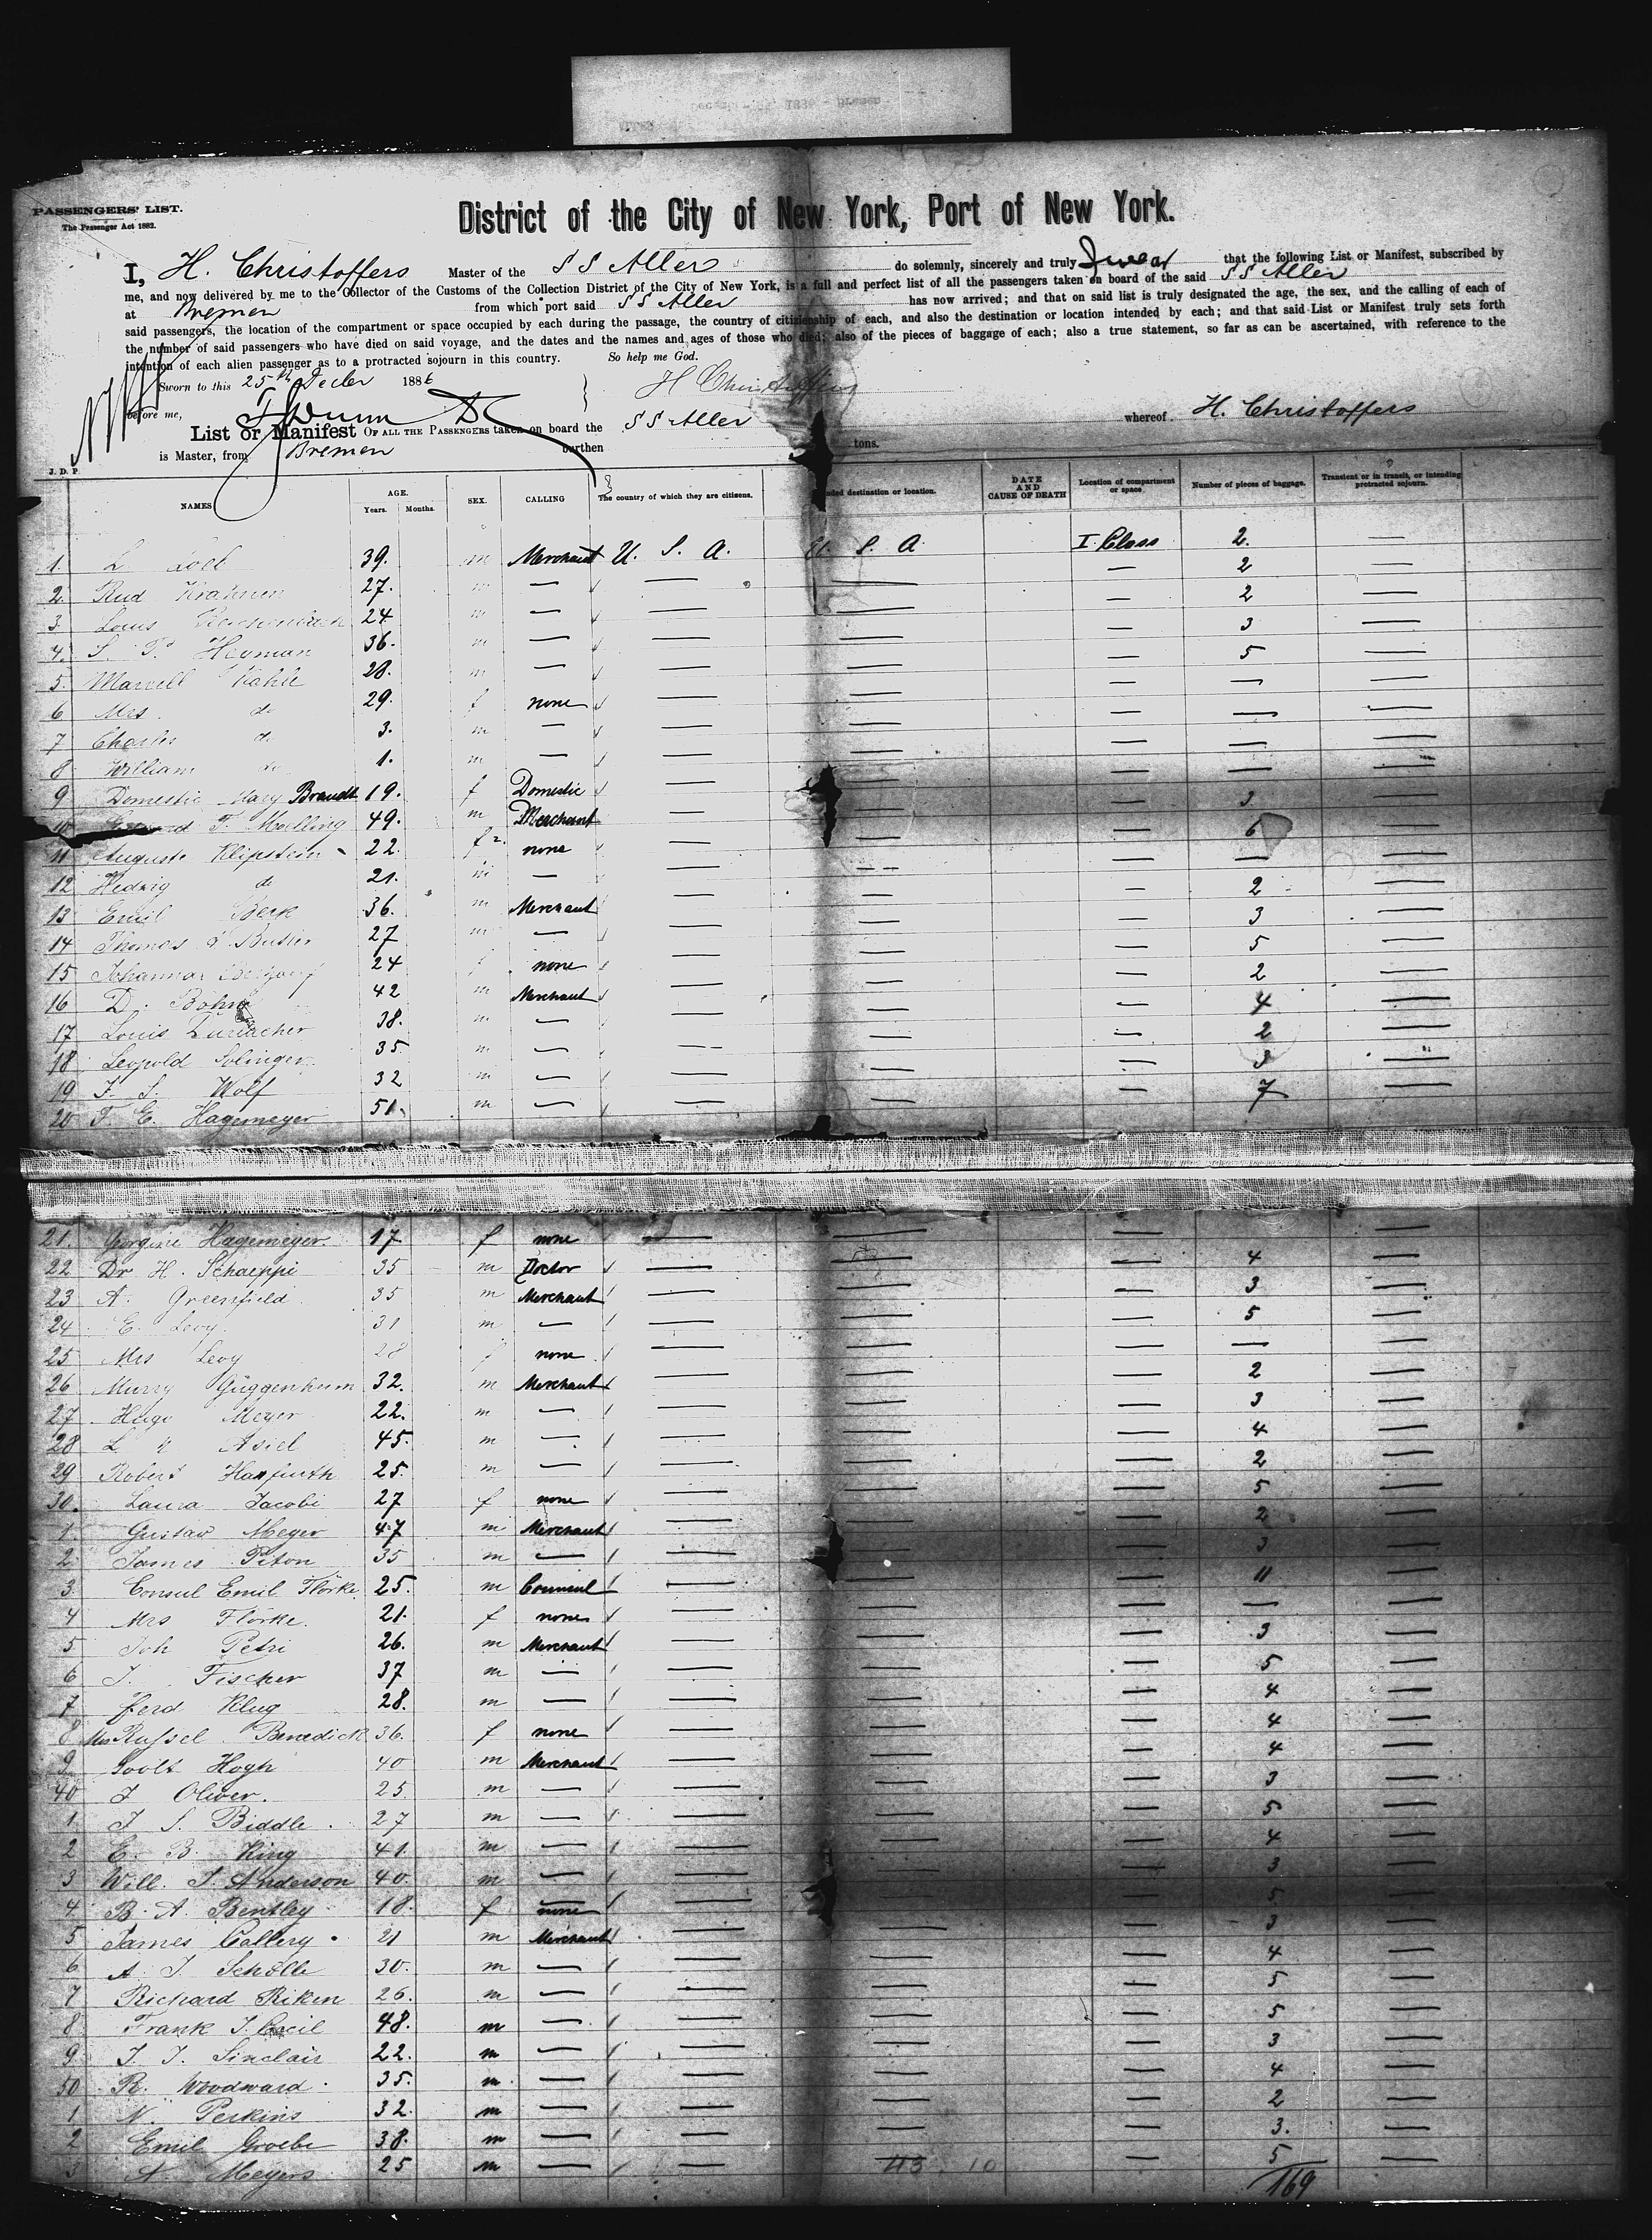 PASSENGERS' LIST.
The Passenger Act 1882.
District of the City of New York, Port of New York.
I, H. Christoffers Master of the SS Aller do solemnly, sincerely and truly Swear that the following List or Manifest, subscribed by
me, and now delivered by me to the Collector of the Customs of the Collection District of the City of New York, is a full and perfect list of all the passengers taken on board of the said SS Aller
at Bremen from which port said SS Aller has now arrived; and that on said list is truly designated the age, the sex, and the calling of each of
said passengers, the location of the compartment or space occupied by each during the passage, the country of citizenship of each, and also the destination or location intended by each; and that said List or Manifest truly sets forth
the number of said passengers who have died on said voyage, and the dates and the names and ages of those who died; also of the pieces of baggage of each; also a true statement, so far as can be ascertained, with reference to the
intention of each alien passenger as to a protracted sojourn in this country. So help me God.
Sworn to this 25th Decber 1886 H Christoffers
before me,
List or Manifest OF ALL THE PASSENGERS taken on board the SS Aller whereof H. Christoffers
is Master, from Bremen burthen tons.
J. D. P.
NAMES AGE. Years. Months. SEX. CALLING The country of which they are citizens. destination or location. DATE AND CAUSE OF DEATH Location of compartment or space Number of pieces of baggage. Transient or in transit, or intending protracted sojourn.
1. L Loeb 39. m Merchant U. S. A. U. S. A I. Class 2. —
2. Rud 27. m — — — — 2 —
3. Louis 24 m — — — — 2 —
4. S. Heyman 36. m — — — — 3 —
5. Kahle 28. m — — — — 5 —
6 Mrs. do 29. f none — — — — —
7 Charles do 3. m — — — — — —
8 William do 1. m — — — — — —
9 Domestic Mary Brandt 19. f Domestic — — — — —
10 F. Melling 49. m Merchant — — — 3 —
11 Auguste Klipstein 22. f none — — — 6 —
12 Hedwig do 21. — — — — — —
13 Emil Berk 36. m Merchant — — — 2 —
14 Thomas Butler 27 m — — — — 3 —
15 Johanna 24 f none — — — 5 —
16 D. Böhn 42 m Merchant — — — 2 —
17 Louis 38. m — — — — 4 —
18 Leopold Solinger 35 m — — — — 2 —
19 S. Wolf 32 m — — — — 3 —
20 F. E. Hagemeyer 51. m — — — — 7 —
21. Georgine Hagemeyer. 17 f none — — — — —
22 Dr H. Schaeppi 35 m Doctor — — — 4 —
23 A. Greenfield 35 m Merchant — — — 3 —
24 E. Levy. 31 m — — — — 5 —
25 Mrs Levy 28 f none — — — — —
26 Murry Guggenheim 32. m Merchant — — — 2 —
27 Hugo Meyer 22. m — — — — 3 —
28 L Asiel 45. m — — — — 4 —
29 Robert Hanfurth 25. m — — — — 2 —
30. Laura Jacobi 27 f none — — — 5 —
1. Gustav Meyer 47 m Merchant — — — 2 —
2. James Piton 35 m — — — — 3 —
3. Consul Emil Florke. 25. m Counsul — — — 11 —
4 Mrs Florke. 21. f none — — — — —
5 Joh Petri 26. m Merchant — — — 3 —
6 J. Fischer 37 m — — — — 5 —
7 Ferd Klug 28. m — — — — 4 —
8 Mrs Russel Benedick 36. f none — — — 4 —
9 Hogh 40 m Merchant — — — 4 —
40 J Oliver. 25. m — — — — 3 —
1 J S. Biddle. 27 m — — — — 5 —
2 E. B. King 41. m — — — — 4 —
3 Will. J. Anderson 40. m — — — — 3 —
4. B. A. Bentley 18. f none — — — 5 —
5 James Callery 21 m Merchant — — — 3 —
6 A. J. Schölle 30. m — — — — 4 —
7 Richard Riken 26. m — — — — 5 —
8 Frank J. Cecil 48. m — — — — 5 —
9 J. J. Sinclair 22. m — — — — 3 —
50 R. Woodward. 35. m — — — — 4 —
1 N. Perkins 32. m — — — — 2 —
2 Emil Groebe 38. m — — — — 3. —
3 A. Meyers 25 m — — 43 10 — 5 —
169